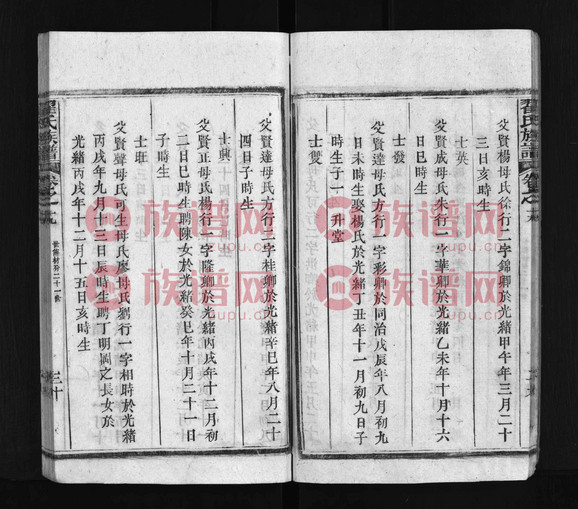 父賢楊母氏徐行二字錦卿於光緒甲午年三月二十
三日亥時生
士英
父賢成母氏朱行二字華卿於光緒乙未年十月十六
日巳時生
士發
父賢達母氏方行一字彩卿於同治戊辰年八月初九
日未時生娶楊氏於光緒丁丑年十一月初九日子
時生子一 升堂
士雙
父賢達母氏方行三字桂卿於光緒辛巳年八月二十
四日子時生
士興
父賢正母氏楊行一字隆卿於光緒丙戌年十二月初
二日巳時生聘陳女於光緒癸巳年十月二十一日
子時生
士旺
父賢聲母氏可生母氏廖母氏劉行一字相時於光緒
丙戌年九月十三日辰時生聘丁明閣之長女於
光緒丙戌年十二月十五日亥時生
氏族譜
三十
族谱网
zupu.cn